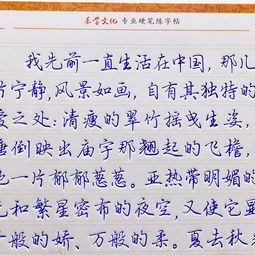 东学文化 专业硬笔练字帖
我先前一直生活在中国，那儿
片宁静，风景如画，自有其独特的
爱之处：清瘦的翠竹摇曳生姿，
塘倒映出庙宇那翘起的飞檐，
地一片郁郁葱葱。亚热带明媚的
光和繁星密布的夜空，又使它显
千般的娇、万般的柔。夏去秋